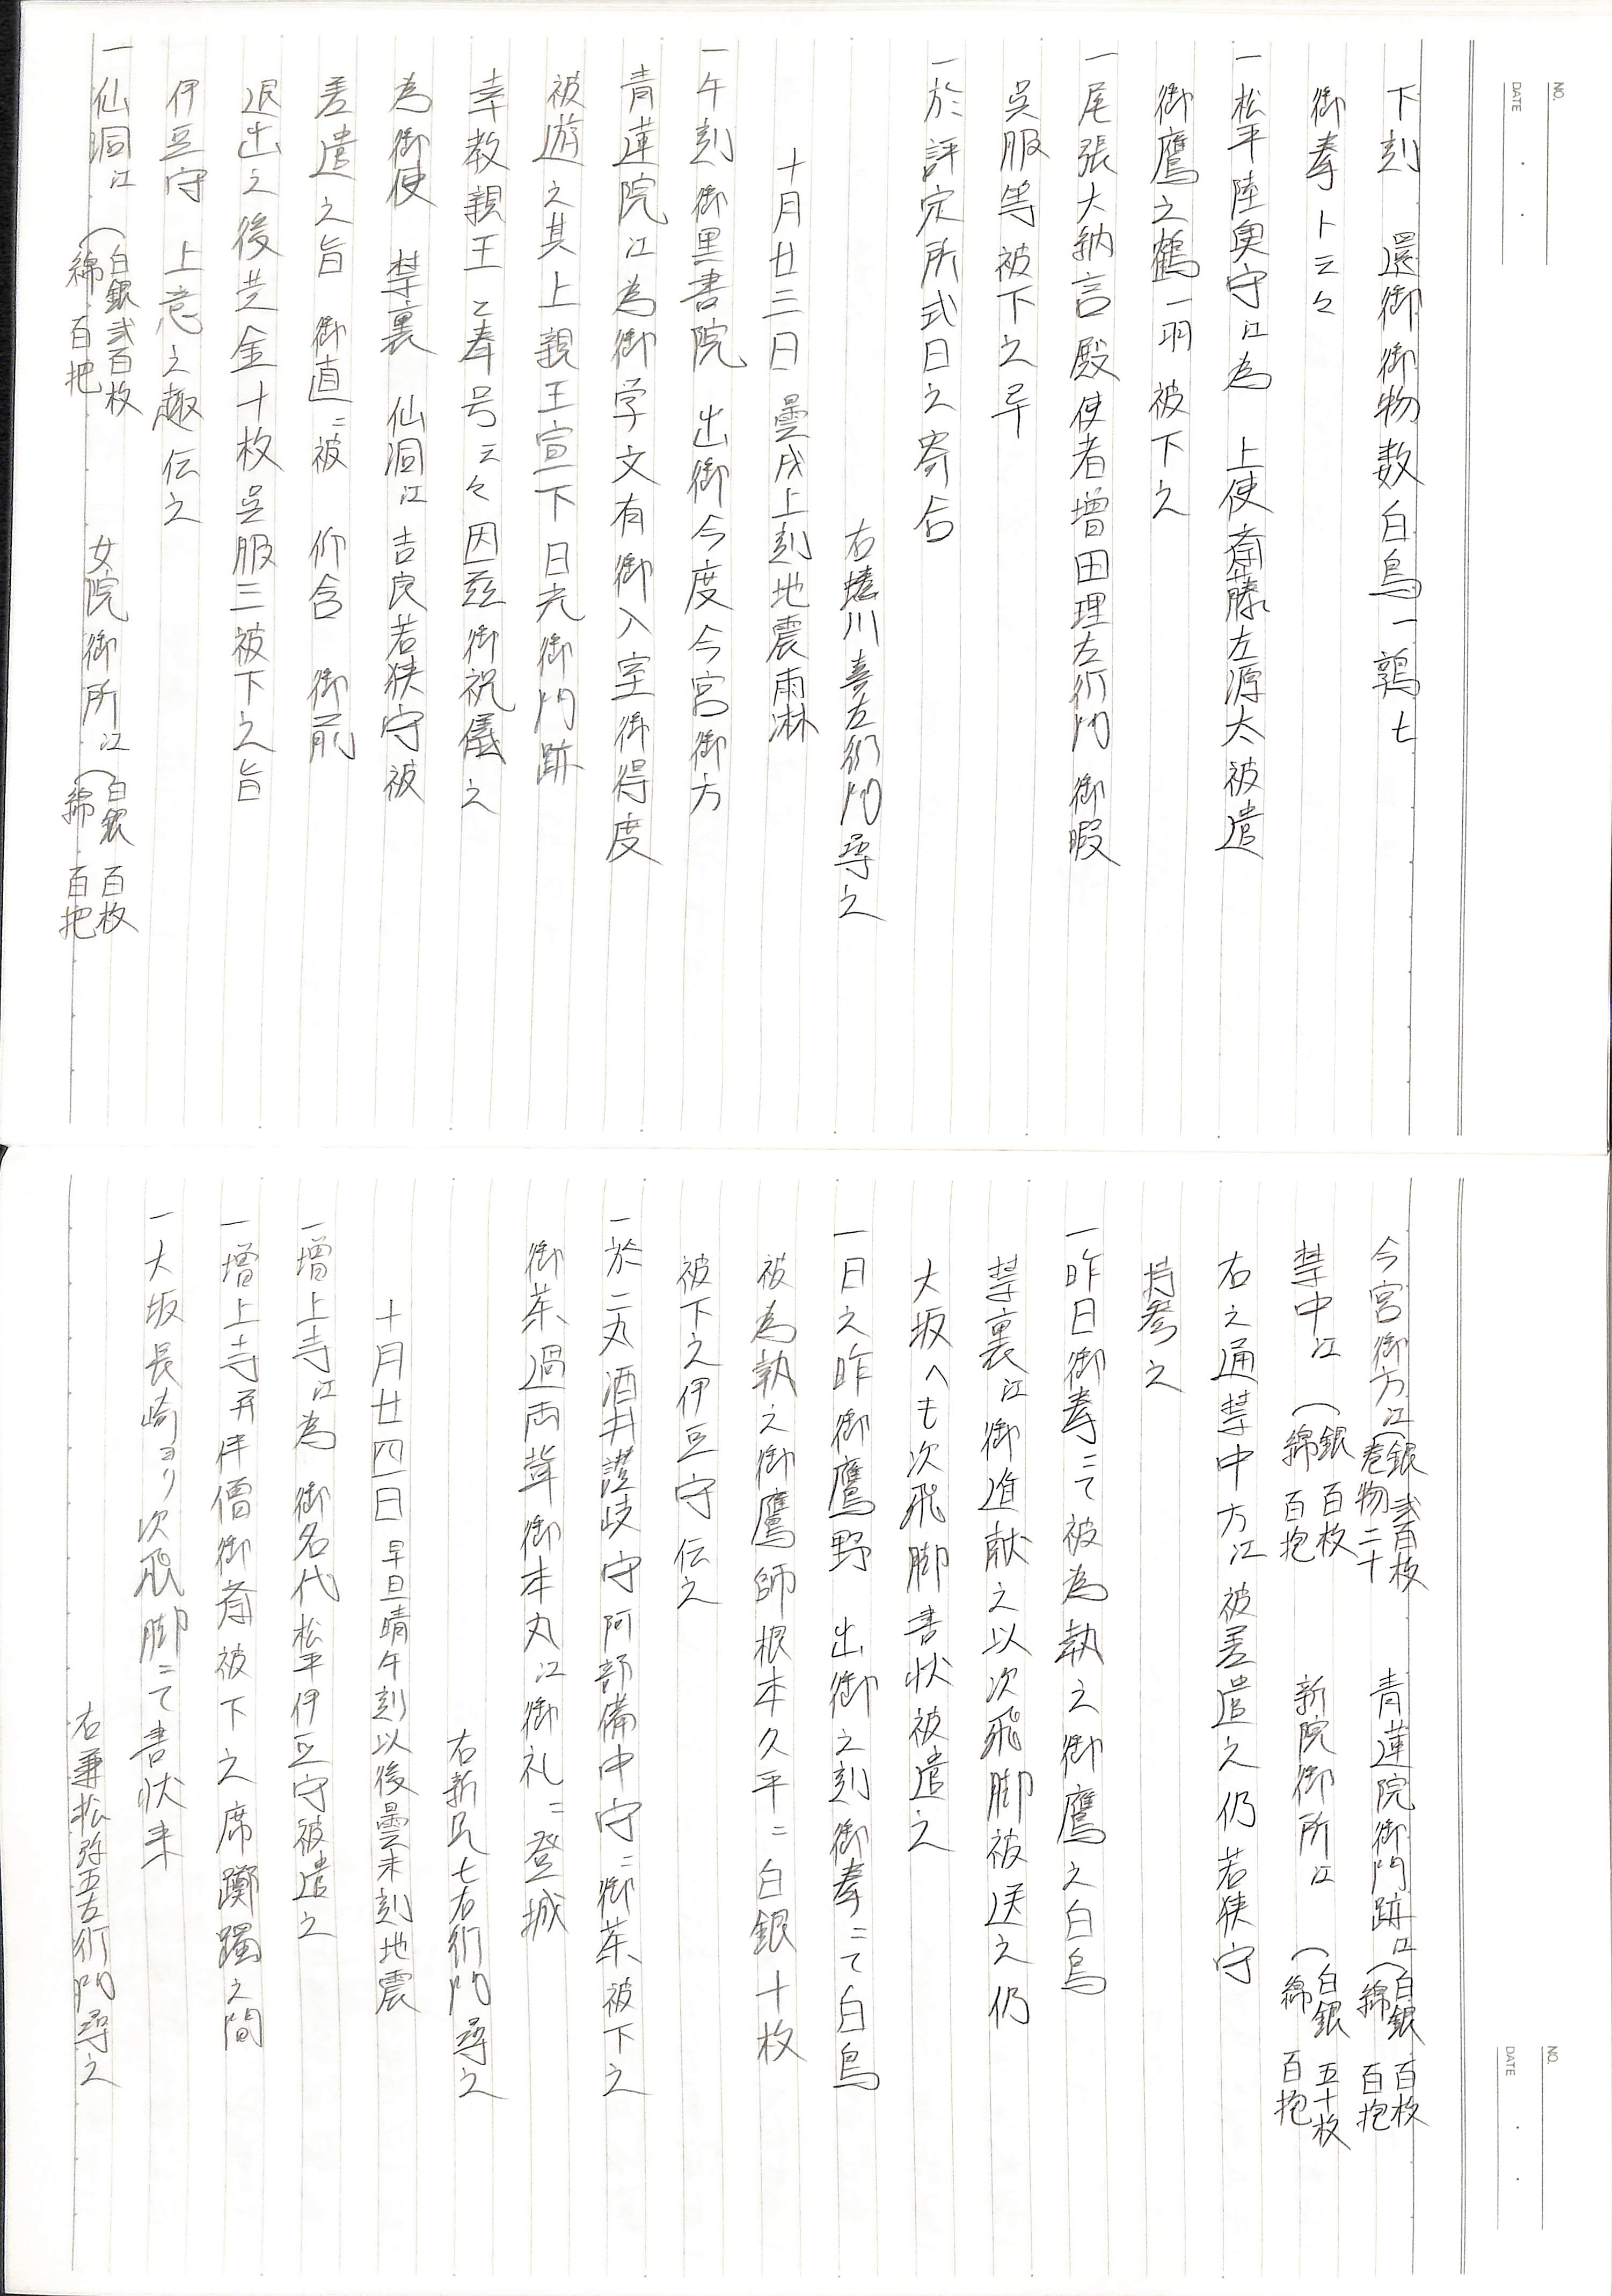 NO.
DATE
下刻 還御御物数白鳥一鶉七
御拳ト云々
一松平陸奥守江為 上使斎藤左源太被遣
御鷹之鶴一羽被下之
一尾張大納言殿使者増田理左衛門 御暇
呉服等被下之
一於評定所式日之寄合
右蜷川喜左衛門尋之
十月廿三日 曇戌上刻地震雨淋
一午刻御黒書院 出御今度今宮御方
青蓮院江為御学文有御入室御得度
被遊之其上親王宣下日光御門跡
幸教親王と奉号云々因茲御祝儀之
為御使 禁裏 仙洞江吉良若狭守被
差遣之旨 御直ニ被 仰含 御前
退出之後黄金十枚呉服三被下之旨
伊豆守 上意之趣伝之
一仙洞江(白銀弐百枚 綿 百把 女院御所江(白銀 百枚 綿 百把
NO.
DATE
今宮御方江(銀弐百枚 巻物二十 青蓮院御門跡江(白銀 百枚 綿 百抱
禁中江 (銀 百枚 綿 百抱 新院御所江 (白銀 五十枚 綿 百抱
右之通禁中方江被差遣之仍若狭守
持参之
一昨日御拳ニて被為執之御鷹之白鳥
禁裏江御進献之以次飛脚被送之仍
大坂へも次飛脚書状被遣之
一日之昨御鷹野 出御之刻御拳ニて白鳥
被為執之御鷹師根本久平ニ白銀十枚
被下之伊豆守 伝之
一於二丸酒井讃岐守阿部備中守ニ御茶被下之
御茶過両輩御本丸江御礼ニ登城
右新見七右衛門尋之
十月廿四日 早旦晴午刻以後曇未刻地震
一増上寺江為 御名代松平伊豆守被遣之
一増上寺并伴僧御斎被下之席躑躅之間
一大坂長崎ヨリ次飛脚ニて書状来
右兼松弥五左衛門尋之